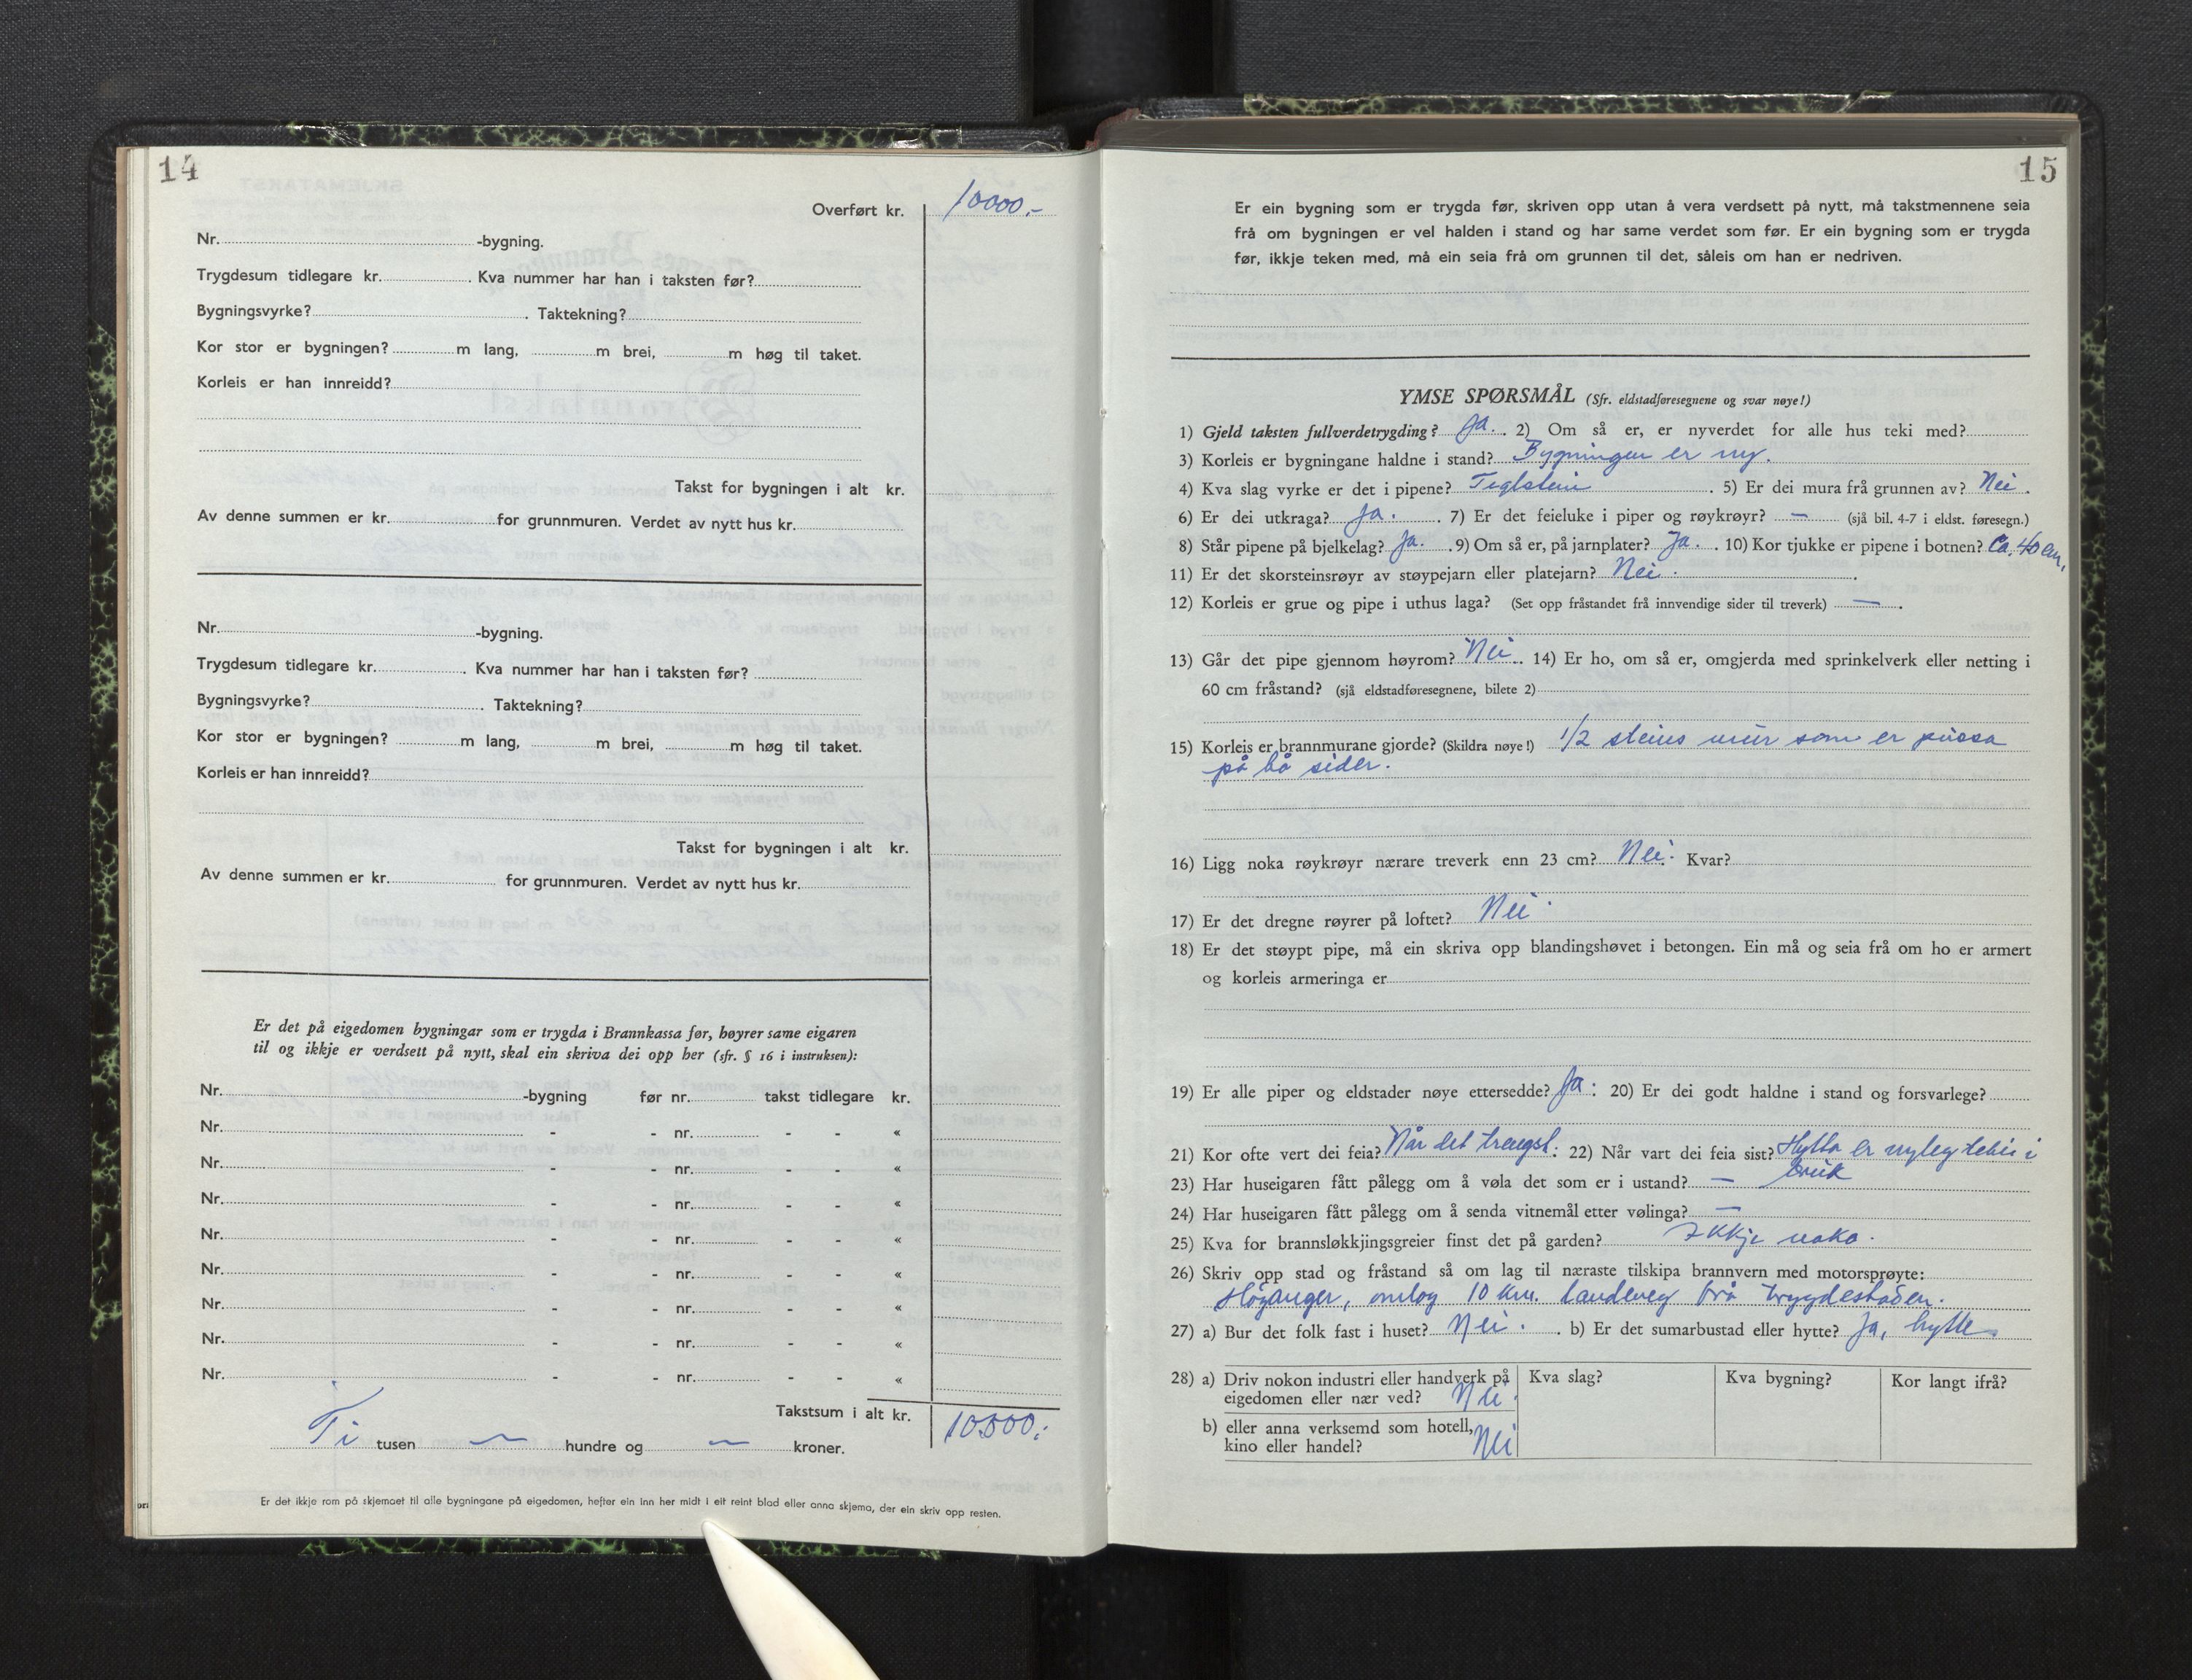 14
Overført kr. 10000.-
Nr. -bygning.
Trygdesum tidlegare kr. . Kva nummer har han i taksten før?
Bygningsvyrke? . Taktekning?
Kor stor er bygningen? m lang, m brei, m høg til taket.
Korleis er han innreidd?
Takst for bygningen i alt kr.
Av denne summen er kr. for grunnmuren. Verdet av nytt hus kr.
Nr. -bygning.
Trygdesum tidlegare kr. . Kva nummer har han i taksten før?
Bygningsvyrke? . Taktekning?
Kor stor er bygningen? m lang, m brei, m høg til taket.
Korleis er han innreidd?
Takst for bygningen i alt kr.
Av denne summen er kr. for grunnmuren. Verdet av nytt hus kr.
Er det på eigedomen bygningar som er trygda i Brannkassa før, høyrer same eigaren
til og ikkje er verdsett på nytt, skal ein skriva dei opp her (sfr. § 16 i instruksen):
Nr. -bygning før nr. takst tidlegare kr.
Nr. - - nr. - - «
Nr. - - nr. - - «
Nr. - - nr. - - «
Nr. - - nr. - - «
Nr. - - nr. - - «
Nr. - - nr. - - «
Nr. - - nr. - - «
Nr. - - nr. - - «
Takstsum i alt kr. 10.000:
Ti tusen — hundre og — kroner.
Er det ikkje rom på skjemaet til alle bygningane på eigedomen, hefter ein inn her midt i eit reint blad eller anna skjema, der ein skriv opp resten.
15
Er ein bygning som er trygda før, skriven opp utan å vera verdsett på nytt, må takstmennene seia
frå om bygningen er vel halden i stand og har same verdet som før. Er ein bygning som er trygda
før, ikkje teken med, må ein seia frå om grunnen til det, såleis om han er nedriven.
YMSE SPØRSMÅL (Sfr. eldstadføresegnene og svar nøye!)
1) Gjeld taksten fullverdetrygding? Ja. . 2) Om så er, er nyverdet for alle hus teki med?
3) Korleis er bygningane haldne i stand? Bygningen er ny.
4) Kva slag vyrke er det i pipene? Teglstein . 5) Er dei mura frå grunnen av? Nei .
6) Er dei utkraga? Ja. . 7) Er det feieluke i piper og røykrøyr? — (sjå bil. 4-7 i eldst. føresegn.)
8) Står pipene på bjelkelag? Ja. . 9) Om så er, på jarnplater? Ja. . 10) Kor tjukke er pipene i botnen? Ca. 40 cm.
11) Er det skorsteinsrøyr av støypejarn eller platejarn? Nei. .
12) Korleis er grue og pipe i uthus laga? (Set opp fråstandet frå innvendige sider til treverk) — .
13) Går det pipe gjennom høyrom? Nei . 14) Er ho, om så er, omgjerda med sprinkelverk eller netting i
60 cm fråstand? (sjå eldstadføresegnene, bilete 2)
15) Korleis er brannmurane gjorde? (Skildra nøye!) 1/2 steins mur som er pussa
på bå sider.
16) Ligg noka røykrøyr nærare treverk enn 23 cm? Nei. Kvar?
17) Er det dregne røyrer på loftet? Nei.
18) Er det støypt pipe, må ein skriva opp blandingshøvet i betongen. Ein må og seia frå om ho er armert
og korleis armeringa er
19) Er alle piper og eldstader nøye ettersedde? Ja. 20) Er dei godt haldne i stand og forsvarlege?
21) Kor ofte vert dei feia? Når det trengst. 22) Når vart dei feia sist? Hytta er nyleg teken i
bruk
23) Har huseigaren fått pålegg om å vøla det som er i ustand? —
24) Har huseigaren fått pålegg om å senda vitnemål etter vølinga? —
25) Kva for brannsløkkjingsgreier finst det på garden? Ikkje noko.
26) Skriv opp stad og fråstand så om lag til næraste tilskipa brannvern med motorsprøyte:
Höyanger, omlag 10 km. landeveg frå trygdestaden.
27) a) Bur det folk fast i huset? Nei. . b) Er det sumarbustad eller hytte? Ja, hytte
28) a) Driv nokon industri eller handverk på
eigedomen eller nær ved? Nei. Kva slag? Kva bygning? Kor langt ifrå?
b) eller anna verksemd som hotell,
kino eller handel? Nei